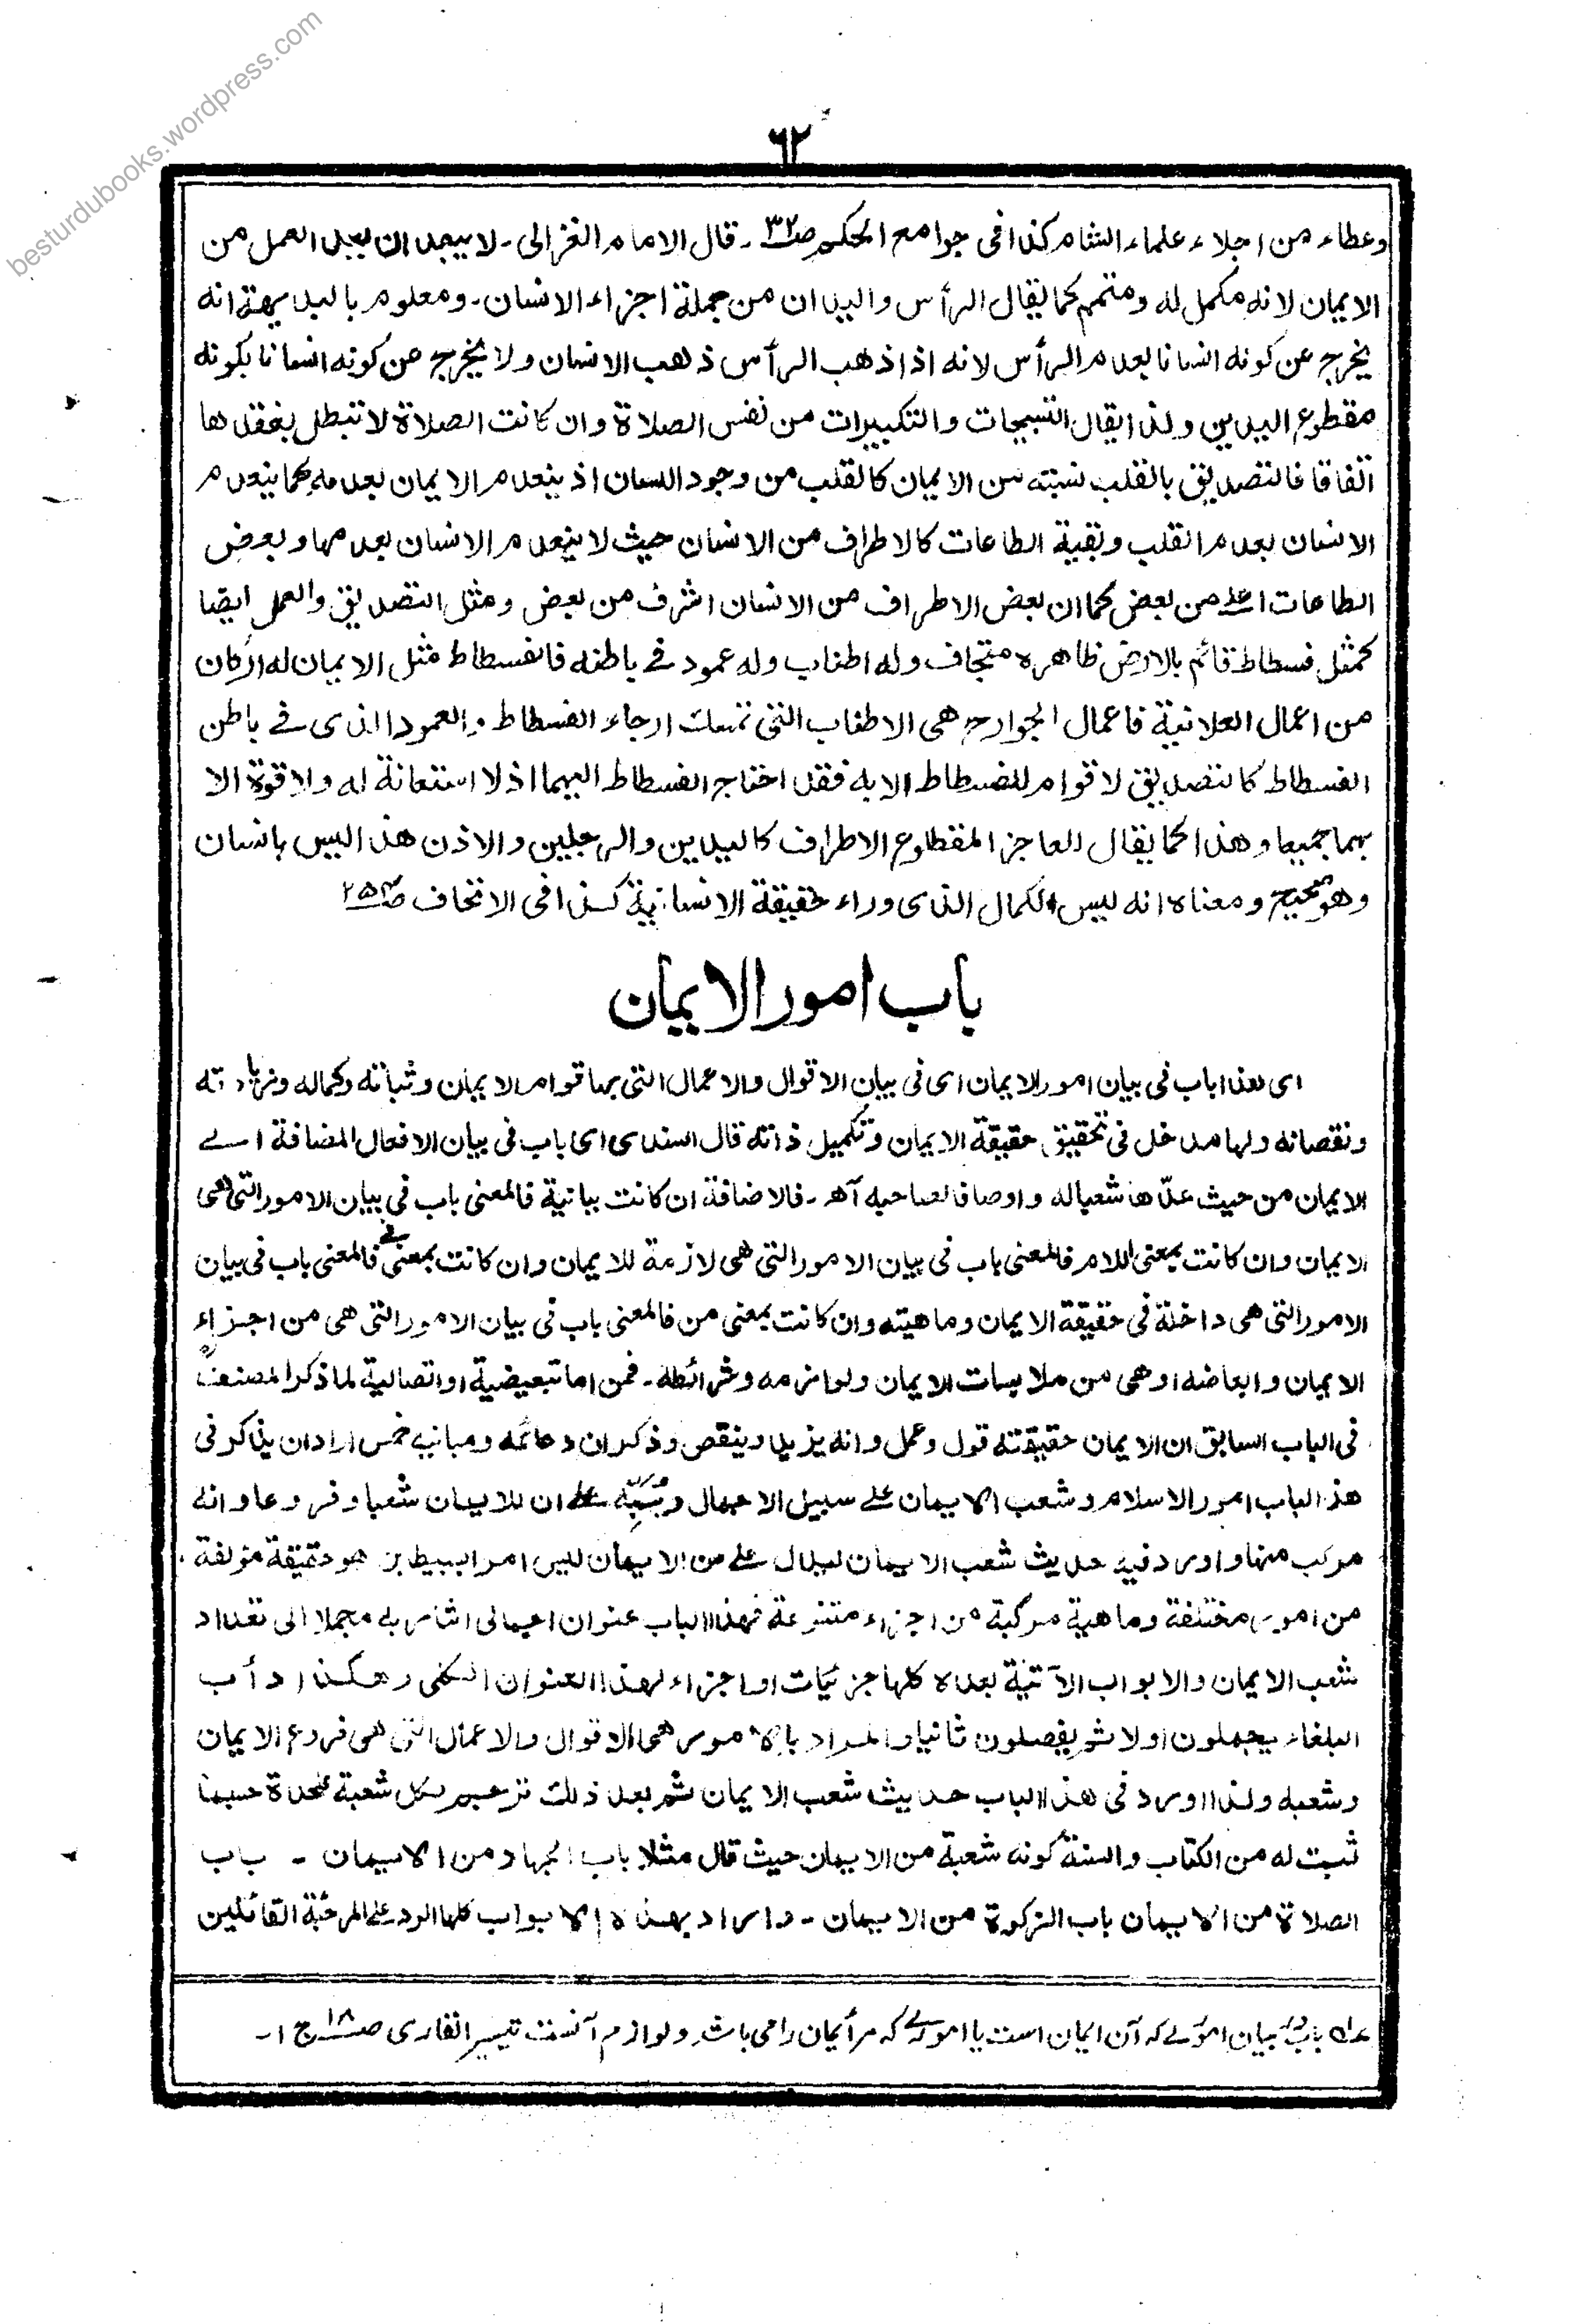 besturdubooks.wordpress.com
٦٢
وعطاء من اجلاء علماء الشام كذا فى جوامع الحكم صـ٣٢ ـ قال الامام الغزالى ـ لا يبعد ان يعد العمل من
الايمان لانه مكمل له ومتمم كما يقال الرأس واليدان من جملة اجزاء الانسان ـ ومعلوم بالبديهة انه
يخرج عن كونه انسانا بعدم الرأس لانه اذا ذهب الرأس ذهب الانسان ولا يخرج عن كونه انسانا بكونه
مقطوع اليدين ولذا يقال التسبيحات والتكبيرات من نفس الصلاة وان كانت الصلاة لا تبطل بفقدها
اتفاقا فالتصديق بالقلب نسبته من الايمان كالقلب من وجود الانسان اذ ينعدم الايمان بعدمه كما ينعدم
الانسان بعدم القلب وبقية الطاعات كالاطراف من الانسان حيث لا ينعدم الانسان بعدمها وبعض
الطاعات اعلى من بعض كما ان بعض الاطراف من الانسان اشرف من بعض ومثل التصديق والعمل ايضا
كمثل فسطاط قائم بالارض ظاهره متجاف وله اطناب وله عمود فے باطنه فالفسطاط مثل الايمان له اركان
من اعمال العلانية فاعمال الجوارح هى الاطناب التى تمسك ارجاء الفسطاط والعمود الذى فے باطن
الفسطاط كالتصديق لا قوام للفسطاط الا به فقد احتاج الفسطاط اليهما اذ لا استعانة له ولا قوة الا
بهما جميعا وهذا كما يقال للعاجز المقطوع الاطراف كاليدين والرجلين والاذن هذا ليس بانسان
وهو صحيح ومعناه انه ليس الكمال الذى وراء حقيقة الانسانية كذا فى الاتحاف صـ٢٥٣
باب امور الايمان
اى هذا باب فى بيان امور الايمان اى فى بيان الاقوال والاعمال التى بها قوام الايمان وثباته وكماله وزيادته
ونقصانه ولها مدخل فى تحقيق حقيقة الايمان وتكميل ذاته قال السندى اى باب فى بيان الافعال المضافة الے
الايمان من حيث عدّها شعبا له واوصافا لصاحبه آهـ ـ فالاضافة ان كانت بيانية فالمعنى باب فى بيان الامور التى هى
الايمان وان كانت بمعنى اللام فالمعنى باب فى بيان الامور التى هى لازمة للايمان وان كانت بمعنى فے فالمعنى باب فى بيان
الامور التى هى داخلة فى حقيقة الايمان وماهيته وان كانت بمعنى من فالمعنى باب فى بيان الامور التى هى من اجزاء
الايمان وابعاضه او هى من ملابسات الايمان ولوازمه وشرائطه ـ فمن اما تبعيضية او اتصالية لما ذكر المصنف
فى الباب السابق ان الايمان حقيقته قول وعمل وانه يزيد وينقص وذكر ان دعائمه ومبانيه خمس اراد ان يذكر فى
هذا الباب امور الاسلام وشعب الايمان علے سبيل الاجمال وينبه علے ان للايمان شعبا وفروعا وانه
مركب منها واورد فيه حديث شعب الايمان ليدل علے ان الايمان ليس امرا بسيطا بل هو حقيقة مؤلفة
من امور مختلفة وماهية مركبة من اجزاء متنوعة فهذا الباب عنوان اجمالى اشار به مجملا الى تعداد
شعب الايمان والابواب الآتية بعده كلها جزئيات او اجزاء لهذا العنوان الكلى وهكذا دأب
البلغاء يجملون اولا ثم يفصلون ثانيا والمراد بالامور هى الاقوال والاعمال التى هى فروع الايمان
وشعبه ولذا اورد فى هذا الباب حديث شعب الايمان ثم بعد ذلك ترجم بكل شعبة عٰلحدة حسبما
ثبت له من الكتاب والسنة كونه شعبة من الايمان حيث قال مثلا باب الجهاد من الايمان ـ باب
الصلاة من الايمان باب الزكوة من الايمان ـ واراد بهذه الابواب كلها الرد علے المرجئة القائلين
عـه باب در بيان امورے كه آن ايمان است يا امورے كه مر ايمان را مى باشد ولوازم آنست تيسير القارى صـ١٨ ج ١ ـ